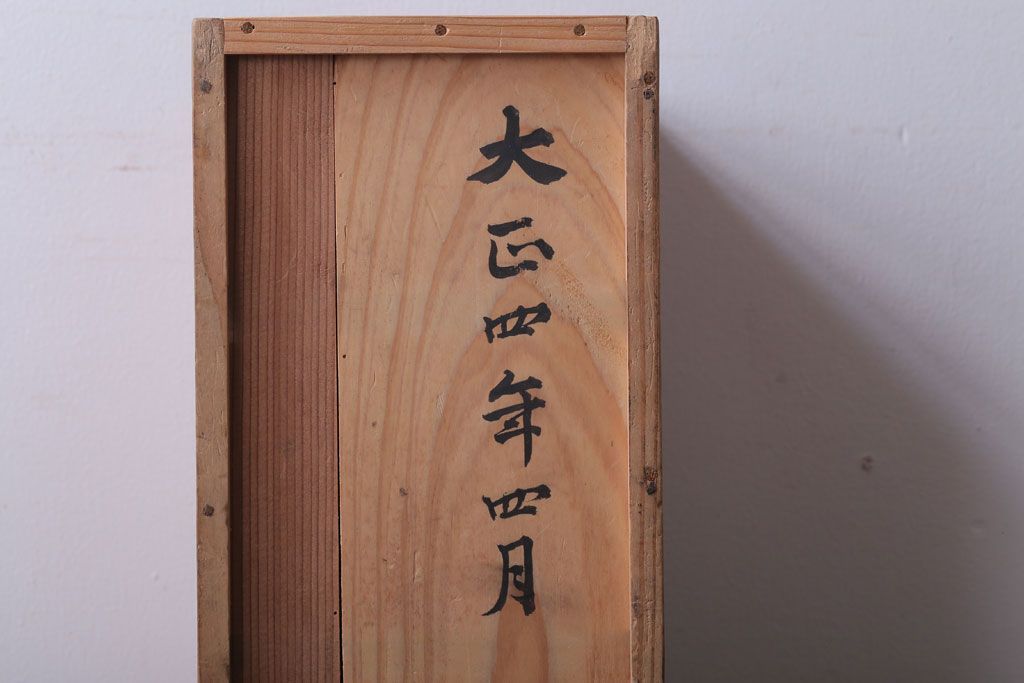 大正四年四月